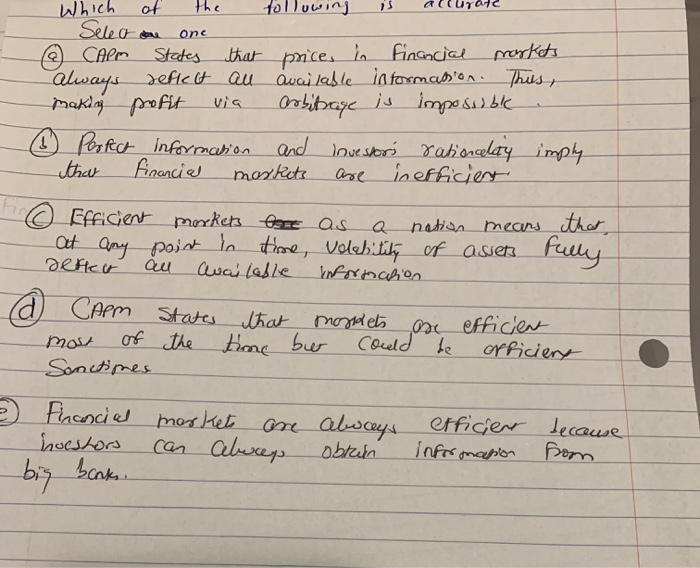 Which of the following is accurate
Select one
(a) CAPM States that prices in financial markets
always reflect all available information. Thus,
making profit via arbitrage is impossible.
(b) Perfect information and investors rationality imply
that financial markets are inefficient
(c) Efficient markets as a notion means that
at any point in time, volatility of assets fully
reflect all available information
(d) CAPM States that markets are efficient
most of the time but could be efficient
Sometimes
e) Financial markets are always efficient because
investors can always obtain information from
big banks.